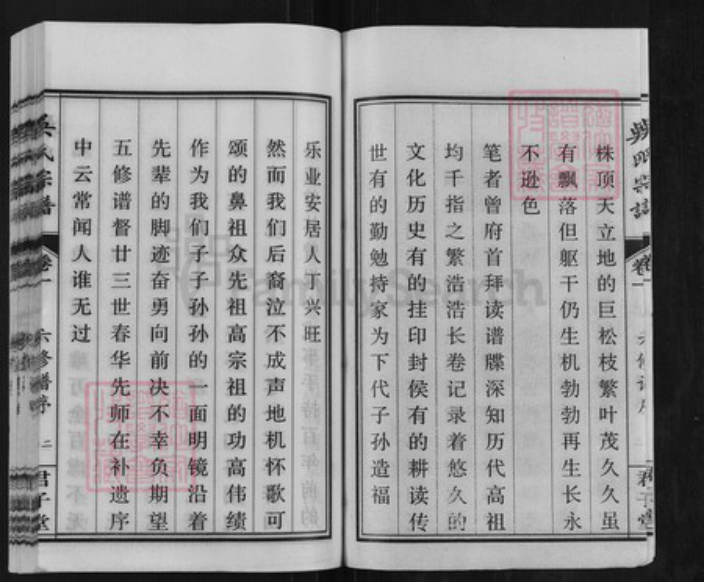 株顶天立地的巨松枝繁叶茂久久虽
有飘落但躯干仍生机勃勃再生长永
不逊色
笔者曾府首拜读谱牒深知历代高祖
均千指之繁浩浩长卷记录着悠久的
文化历史有的挂印封侯有的耕读传
世有的勤勉持家为下代子孙造福
乐业安居人丁兴旺
然而我们后裔泣不成声地机怀歌可
颂的鼻祖众先祖高宗祖的功高伟绩
作为我们子子孙孙的一面明镜沿着
先辈的脚迹奋勇向前决不幸负期望
五修谱督廿三世春华先师在补遗序
中云常闻人谁无过
吴氏宗谱
卷一
六修谱序
二
君子堂
FamilySearch